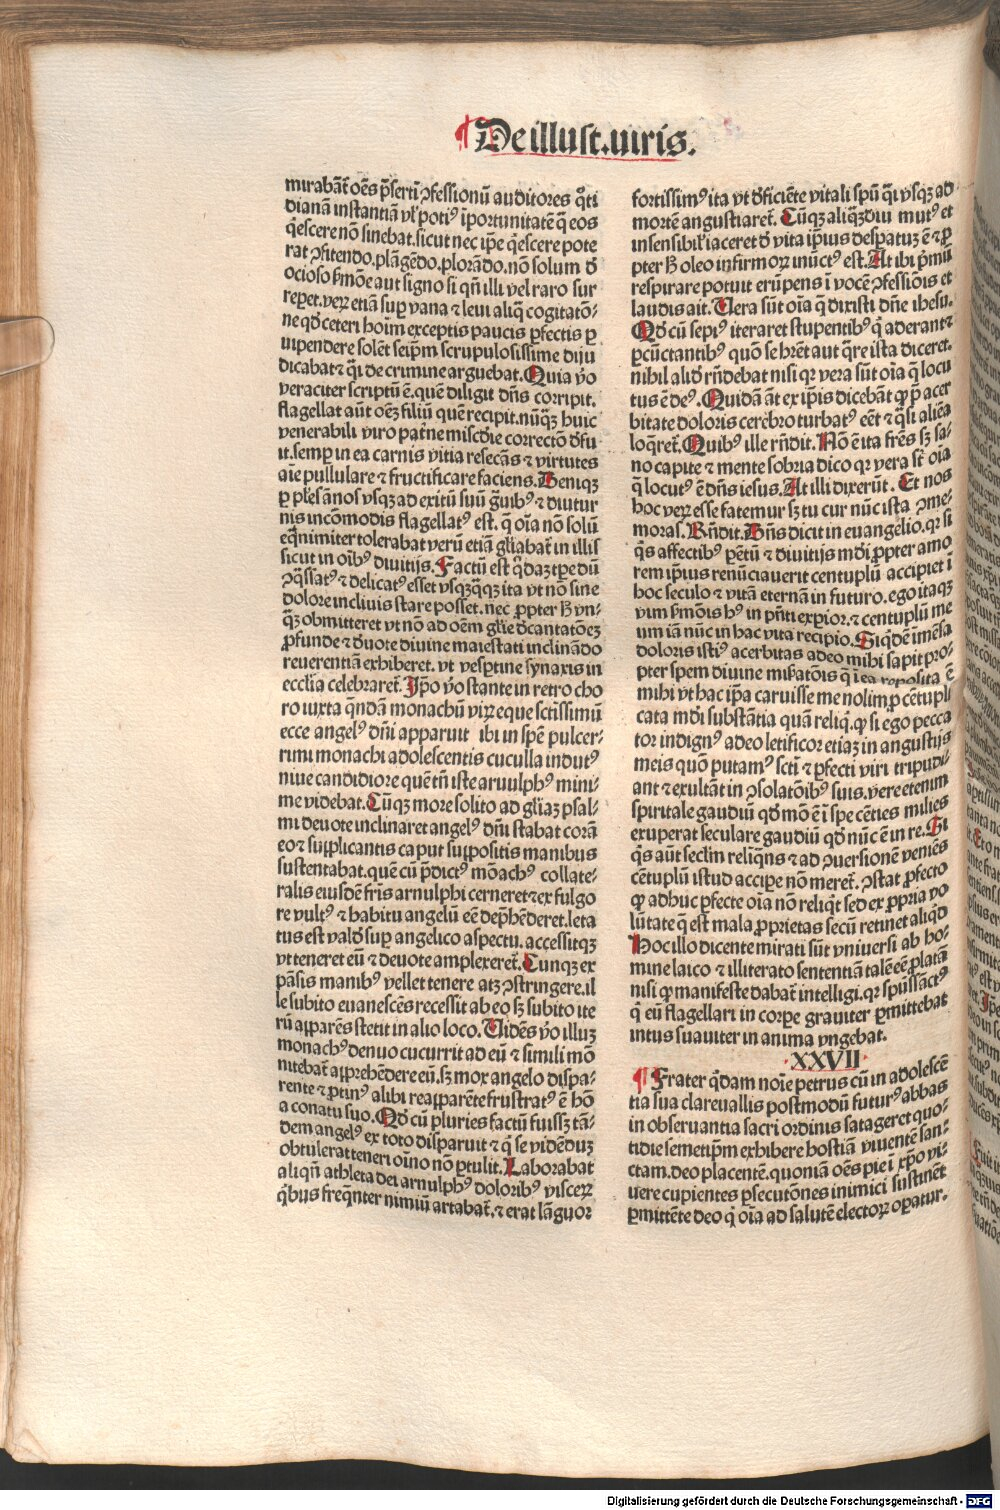 ¶ De illust. viris.
mirabāt̄ oēs p̄sertī ꝯfessionū auditores q̄ti
dianā instantiā vl̓ poti⁹ īportunitatē q̄ eos
q̄escere nō sinebat. sicut nec ip̄e q̄escere pote
rat ꝯfitendo. plāgēdo. plorādo. nō solum đ
ocioso ẜmōe aut signo si qn̄ illi vel raro sur
reꝑet. veꝝ etiā suꝑ vana ⁊ leui aliq̄ cogitatō-
ne qđ ceteri hoīm exceptis paucis ꝑfectis ꝑ
uipendere solēt seip̄m scrupulosissime diiu
dicabat ⁊ q̄i de crimine arguebat. Quia v̓o
veraciter scriptū ē. quē diligit dn̄s corripit.
flagellat aūt oēꝫ filiū quē recipit. nūq̄ꝫ huic
venerabili viro pat̄ne miscđie correctō đfu
it. semꝑ in ea carnis vitia resecās ⁊ virtutes
aīe pullulare ⁊ fructificare faciens. Deniqꝫ
ꝑ pl̓es ānos vsqꝫ ad exitū suū ḡuibꝰ ⁊ diutur
nis incōmodis flagellatꝰ est. q̄ oīa nō solū
eq̄nimiter tolerabat verū etiā gl̓iabat̄ in illis
sicut in oībꝰ diuitijs. Factū est q̄daꝫ tꝑe dū
ꝯq̄ssatꝰ ⁊ delicatꝰ esset vsqꝫq̄qꝫ ita vt nō sine
dolore incliuis stare posset. nec ꝓpter ꝧ vn-
q̄ꝫ obmitteret vt nō ad oēm gl̓ie đcantatōeꝫ
ꝓfunde ⁊ đuote diuine maiestati inclinādo
reuerentiā exhiberet. vt vesꝑtine synaxis in
eccl̓ia celebraret̄. Ip̄o v̓o stante in retro cho
ro iuxta q̄ndā monachū viꝝ eque sctissimū
ecce angelꝰ dn̄i apparuit ibi in spē pulcer-
rimi monachi adolescentis cuculla indutꝰ
niue candidiore que tn̄ iste arnulphꝰ mini-
me videbat. Cūqꝫ more solito ad gl̓iaꝫ psal-
mi deuote inclinaret angelꝰ dn̄i stabat corā
eo ⁊ supplicantis caput suppositis manibus
sustentabat. quē cū p̄dictꝰ mōachꝰ collate-
ralis eiusdē fr̄is arnulphi cerneret ⁊ ex fulgo
re vultꝰ ⁊ habitu angelū eē dep̄hēderet. leta
tus est valđ suꝑ angelico aspectu. accessitqꝫ
vt teneret eū ⁊ deuote amplexeret̄. Cunqꝫ ex
pāsis manibꝰ vellet tenere atqꝫ ꝯstringere. il
le subito euanescēs recessit ab eo sꝫ subito ite
rū apparēs stetit in alio loco. Uidēs v̓o illuꝫ
monachꝰ denuo cucurrit ad eū ⁊ simili mō
nitebat̄ apprehēdere eū. sꝫ mox angelo dispa-
rente ⁊ ꝓtinꝰ alibi reapparēte frustratꝰ ē hō
a conatu suo. Qđ cū pluries factū fuissꝫ tā-
dem angelꝰ ex toto disparuit ⁊ q̄ se vidēduꝫ
obtulerat teneri oīno nō ꝑtulit. Laborabat
aliqn̄ athleta dei arnulphꝰ doloribꝰ visceꝝ
q̄bus freq̄nter nimiū artabat̄. ⁊ erat lāguor
fortissimꝰ ita vt đficiēte vitali sp̄u q̄i vsqꝫ ad
mortē angustiaret̄. Cūqꝫ aliq̄ꝫdiu mutꝰ et
insensibil̓ iaceret đ vita ip̄ius desꝑatuꝫ ē ⁊ ꝓ
pter ꝧ oleo infirmoꝝ inūctꝰ est. At ibi p̄mū
respirare potuit erūpens ī vocē ꝯfessiōis et
laudis ait. Uera sūt oīa q̄ dixisti dn̄e ihesu.
Qđ cū sepiꝰ iteraret stupentibꝰ q̄ aderant ⁊
ꝑcūctantibꝰ quō se hr̄et aut q̄re ista diceret.
nihil aliđ rn̄debat nisi qꝛ vera sūt oīa q̄ locu
tus ē deꝰ. Quidā āt ex ip̄is dicebāt ꝙ p̄ acer
bitate doloris cerebro turbatꝰ eēt ⁊ q̄si aliēa
loq̄ret̄. Quibꝰ ille rn̄dit. Nō ē ita fr̄es sꝫ sa-
no capite ⁊ mente sobria dico qꝛ vera st̄ oīa
q̄ locutꝰ ē dn̄s iesus. At illi dixerūt. Et nos
hoc veꝝ esse fatemur sꝫ tu cur nūc ista ꝯme-
moras. Rn̄dit. Dn̄s dicit in euangelio. qꝛ si
q̄s affectibꝰ pētū ⁊ diuitijs mđi ꝓpter amo
rem ip̄ius renūciauerit centuplū accipiet ī
hoc seculo ⁊ vitā eternā in futuro. ego itaqꝫ
vim ẜmōis hꝰ in pn̄ti exꝑior. ⁊ centuplū me
um iā nūc in hac vita recipio. Siq̄dē imēsa
doloris istiꝰ acerbitas adeo mihi sapit pro-
pter spem diuine miẜatōis q̄ ī ea reposita ē
mihi vt hac ip̄a caruisse me nolim. ꝑ cētupli
cata mđi substātia quā reliq̄. ꝙ si ego pecca
tor indignꝰ adeo letificor etiaꝫ in angustijs
meis quō putamꝰ scti ⁊ ꝑfecti viri tripudi-
ant ⁊ exultāt in ꝯsolatōibꝰ suis. vere etenim
spirituale gaudiū qđ mō ē ī spe cēties milies
exuperat seculare gaudiū qđ nūc ē in re. Si
q̄s aūt seclm̄ reliq̄ns ⁊ ad ꝯuersionē veniēs
cētuplū istud accipe nō meret̄. ꝯstat ꝓfecto
ꝙ adhuc ꝑfecte oīa nō reliq̄t sed ex ꝓpria vo
lūtate q̄ est mala ꝓprietas secū retinet aliq̄đ
Hoc illo dicente mirati sūt vniuersi ab ho-
mine laico ⁊ illiterato sententiā talē eē ꝓlatā
nisi ꝙ manifeste dabat̄ intelligi. qꝛ spūssāctꝰ
q̄ eū flagellari in corꝑe grauiter ꝑmittebat
intus suauiter in anima vngebat.
·XXVII·
¶ Frater q̄dam noīe petrus cū in adolescē
tia sua clareuallis postmodū futurꝰ abbas
in obseruantia sacri ordinis satageret quo-
tidie semetip̄m exhibere hostiā viuentē san-
ctam. deo placentē. quoniā oēs pie ī xp̄o vi-
uere cupientes ꝑsecutōnes inimici sustinēt
ꝑmittēte deo q̄ oīa ad salutē electoꝝ oꝑatur.
Digitalisierung gefördert durch die Deutsche Forschungsgemeinschaft - DFG